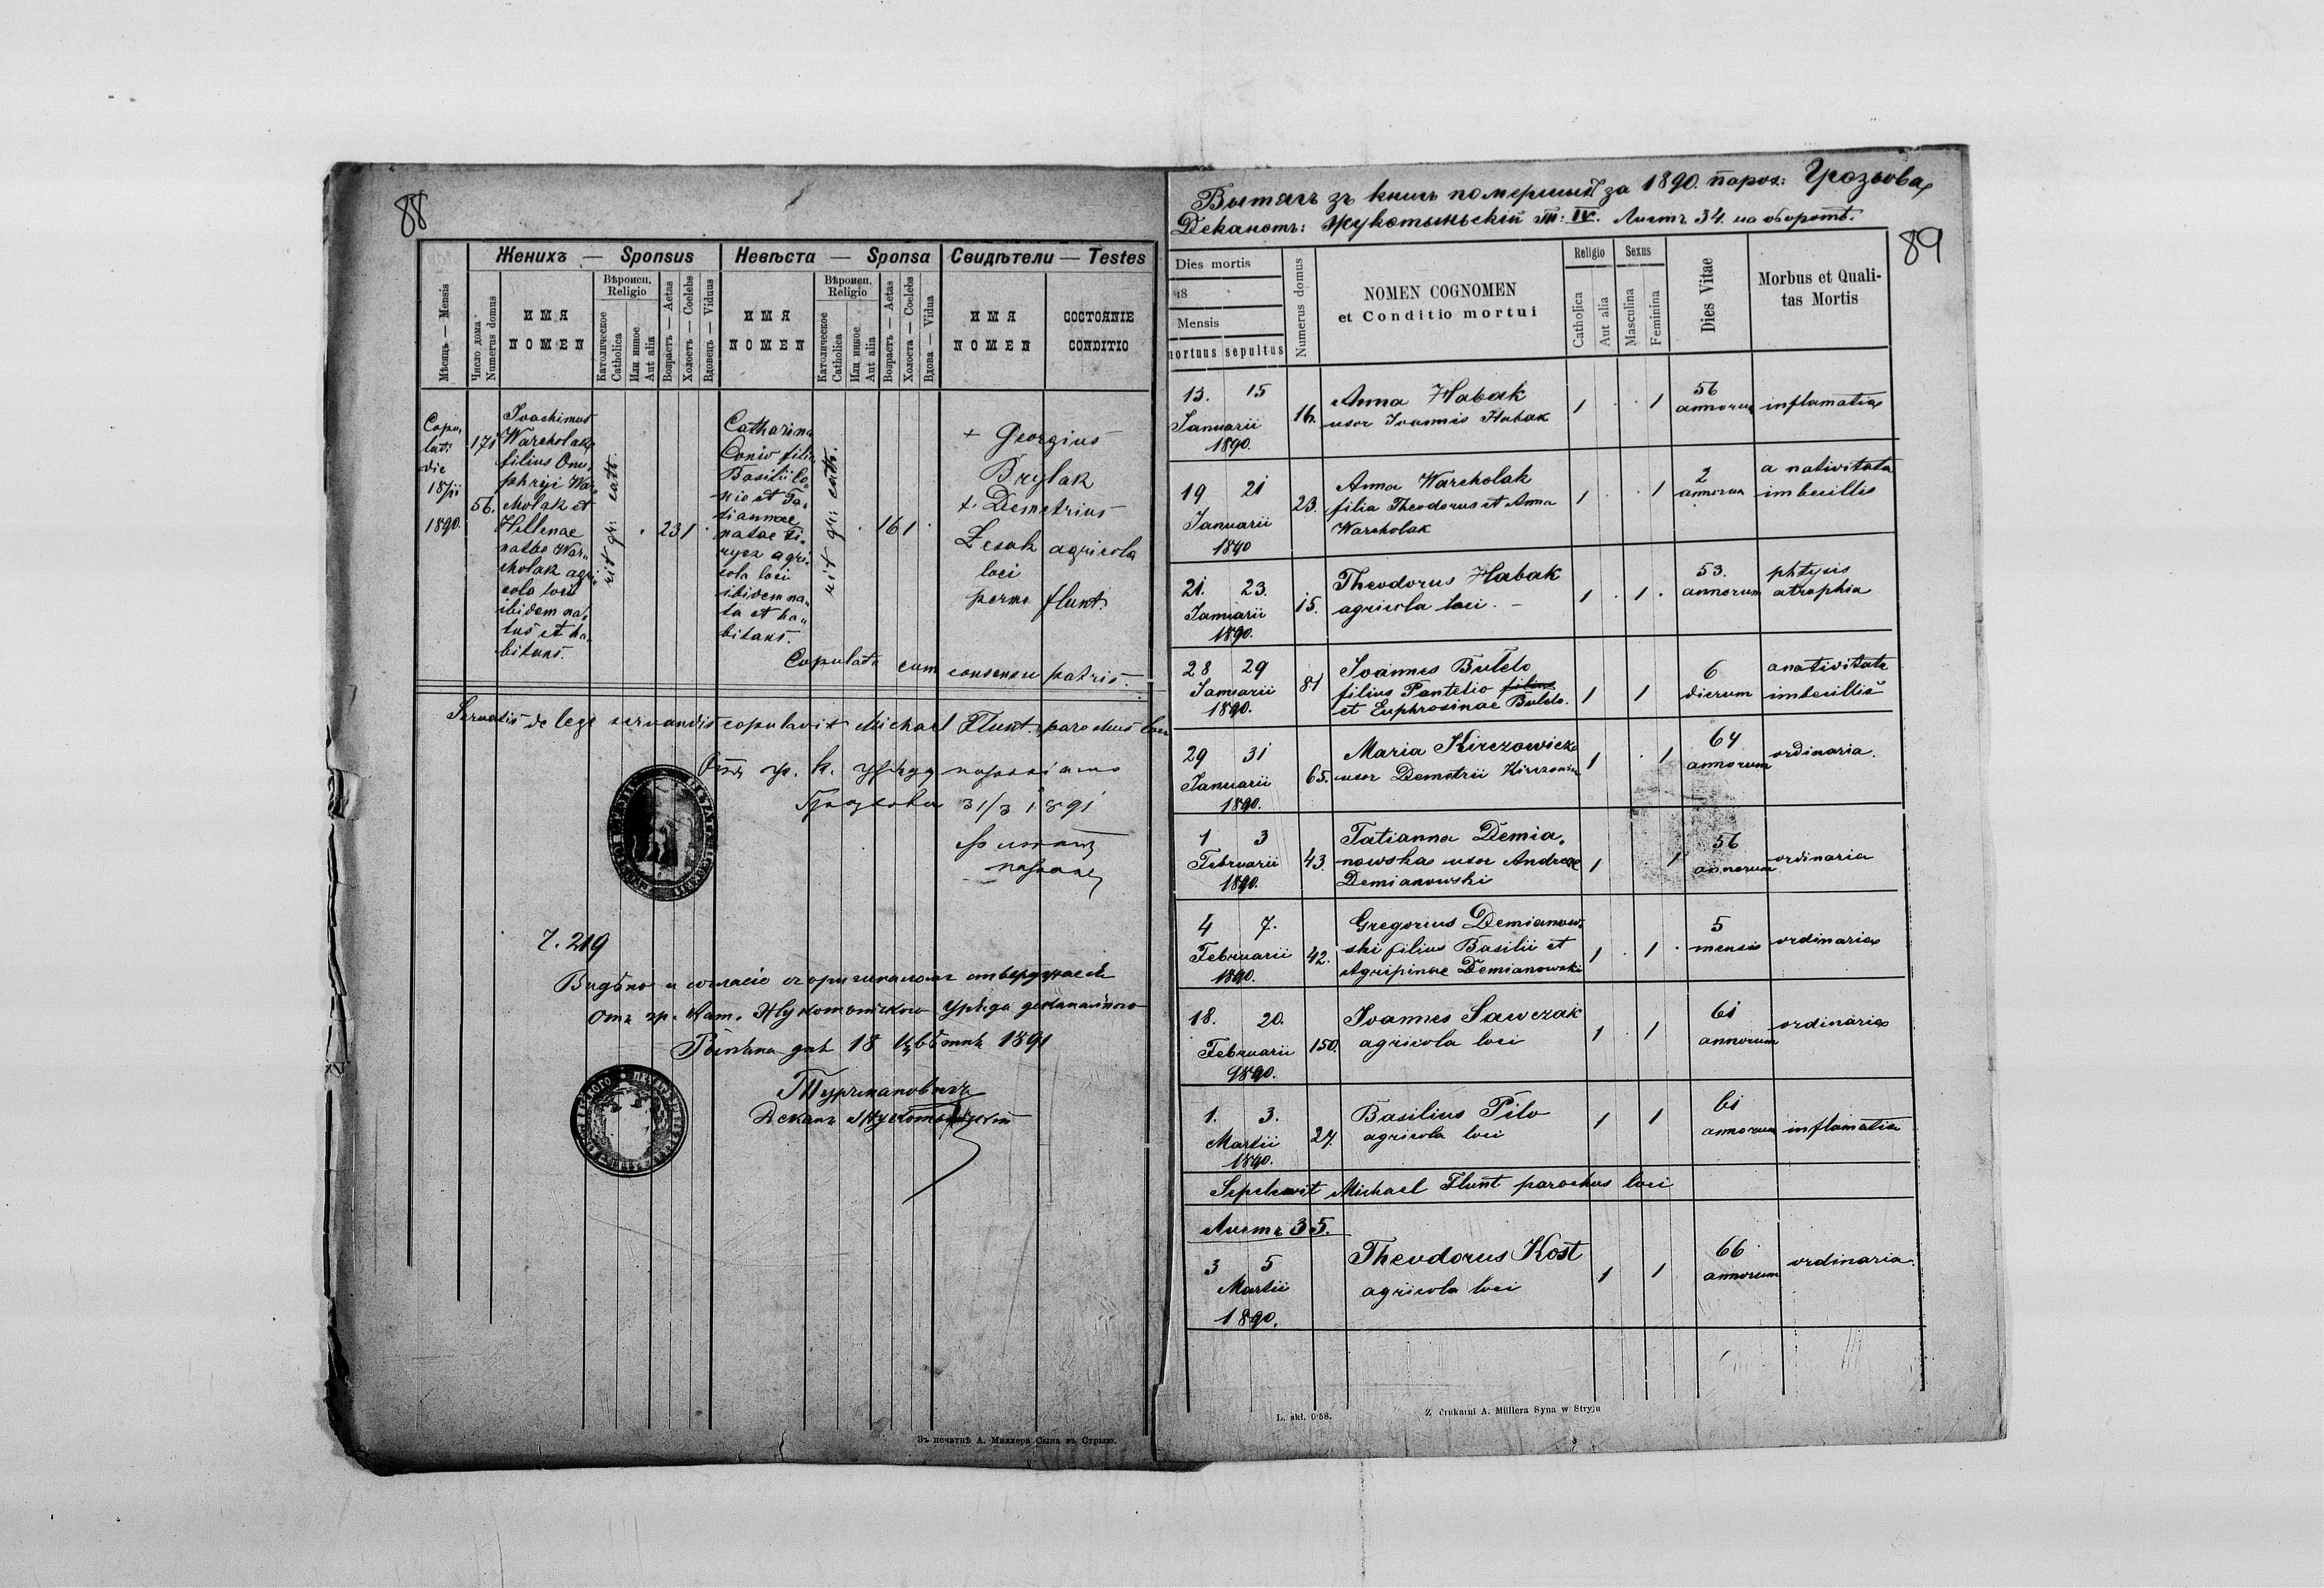 88
Женихъ — Sponsus
Невѣста — Sponsa
Свидѣтели — Testes
Мѣсяць — Mensis
Число дома
Numerus domus
ИМЯ
NOMEN
Вѣроисп.
Religio
Католическое
Catholica
Или иное
Aut alia
Возрастъ — Aetas
Холостъ — Coelebs
Вдовецъ — Viduus
ИМЯ
NOMEN
Вѣроисп.
Religio
Католическое
Catholica
Или иное
Aut alia
Возрастъ — Aetas
Холоста — Coelebs
Вдова — Vidua
ИМЯ
NOMEN
СОСТОЯНІЕ
CONDITIO
Copu„
lati
die
18/ii
1890.
171
56.
Joachimus
Warcholak
filius Onu„
phryi War„
cholak et
Hellenae
natae War„
cholak agri„
cola loci
ibidem na„
tus et ha„
bitans.
rit gr: cath.
23 1
Catharina
Conio filia
Basilii Co„
nio et Ta„
tiannae
natae Ti„
rycz agri„
cola loci
ibidem na„
ta et ha„
bitans.
rit gr: cath.
16 1
+ Georgius
Brylak
+ Demetrius
Zesak agricola
loci
perme flunt.
Copulati cum consensu patris.
Servatis de lege servandis copulavit Michael Flunt parochus loci
Отъ гр. к. уряду
Грозьова 31/3 1891
Ч. 219
Видѣно и согласіе съ оригиналомъ отверджаесь
Отъ гр. кат. Жукотинского Уряда деканального
дня 18 Цвѣтня 1891
Турчмановичъ
Деканъ
Зъ печатнѣ А. Миллера Сына въ Стрыю.
Вытягъ зъ книгъ помершихъ за 1890. парох: Грозьова,
Деканатъ: Жукотыньскій Т: IV. Листъ 34. на оборотѣ.
89
Dies mortis
18
Mensis
mortuus sepultus
Numerus domus
NOMEN COGNOMEN
et Conditio mortui
Religio
Catholica
Aut alia
Sexus
Masculina
Feminina
Dies Vitae
Morbus et Quali-
tas Mortis
13. 15
Januarii
1890.
16.
Anna Habak
uxor Joannis Habak
1 1
56
annorum
inflamatia
19 21
Januarii
1890
23.
Anna Warcholak
filia Theodorus et Anna
Warcholak
1 1
2
annorum
a nativitata
imbecillis
21. 23.
Januarii
1890.
15.
Theodorus Habak
agricola loci. –
1 1
53.
annorum
phtysis
atrophia
28 29
Januarii
1890.
81
Joannes Bulelo
filius Pantelio filius
et Euphrosinae Bulelo.
1 1
6
dierum
a nativitate
imbecillis
29 31
Januarii
1890.
65.
Maria Kirczowicz
uxor Demetrii Kirczowicz
1 1
64
annorum
ordinaria.
1 3
Februarii
1890.
43.
Tatianna Demia„
nowska uxor Andreae
Demianowski
1 1
56
annorum
ordinaria
4 7.
Februarii
1890.
42.
Gregorius Demianow„
ski filius Basilii et
Agripinae Demianowski
1 1
5
mensis
ordinaria
18. 20.
Februarii
1890.
150.
Joannes Sawczak
agricola loci
1 1
61
annorum
ordinaria
1. 3.
Martii
1890.
27.
Basilius Pilo
agricola loci
1 1
61
annorum
inflamatia
Sepelivit Michael Flunt parochus loci
Листъ 35.
3 5
Martii
1890.
Theodorus Kost
agricola loci
1 1
66
annorum
ordinaria.
L. skł. 0·58.
Z drukarni A. Müllera Syna w Stryju